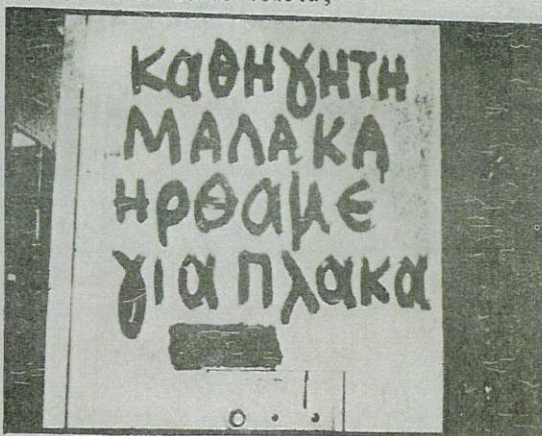 καθηγητη
ΜΑΛΑΚΑ
ηρθαμε
για πλακα